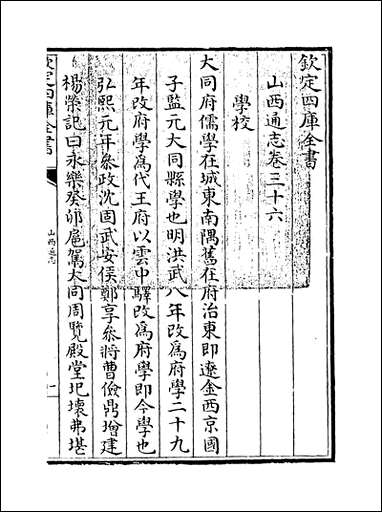 欽定四庫全書
山西通志卷三十六
學校
大同府儒學在城東南隅舊在府治東即遼金西京國
子監元大同縣學也明洪武八年改爲府學二十九
年改府學爲代王府以雲中驛改爲府學即今學也
弘熙元年叅政沈固武安侯鄭亨叅將曹儉鼎增建
楊榮記曰永樂癸卯扈駕大同周覽殿堂圯壊弗堪
欽定四庫全書
山西通志